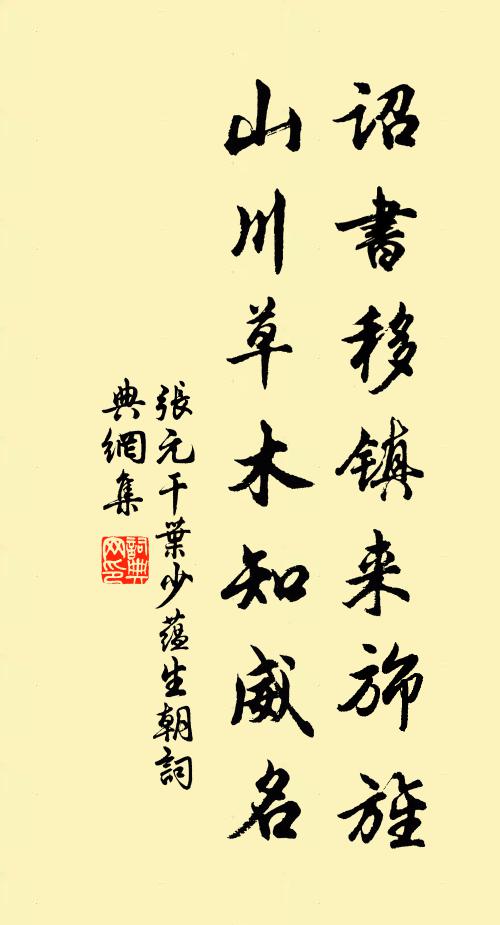 诏書移镇来旆旌
山川草木知威名
張元干葉少蕴生朝詞
典網集
詞典網印